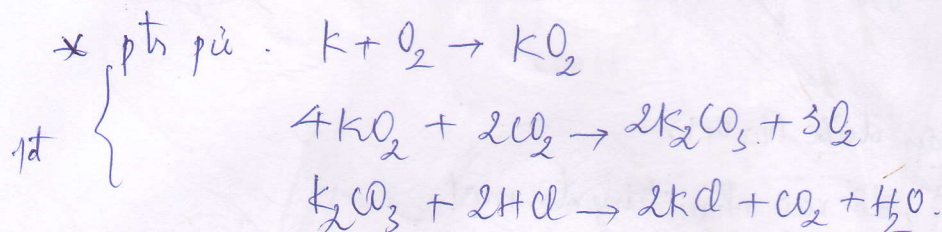 * ptr pứ. K + O₂ → KO₂
1đ { 4KO₂ + 2CO₂ → 2K₂CO₃ + 3O₂
K₂CO₃ + 2HCl → 2KCl + CO₂ + H₂O.